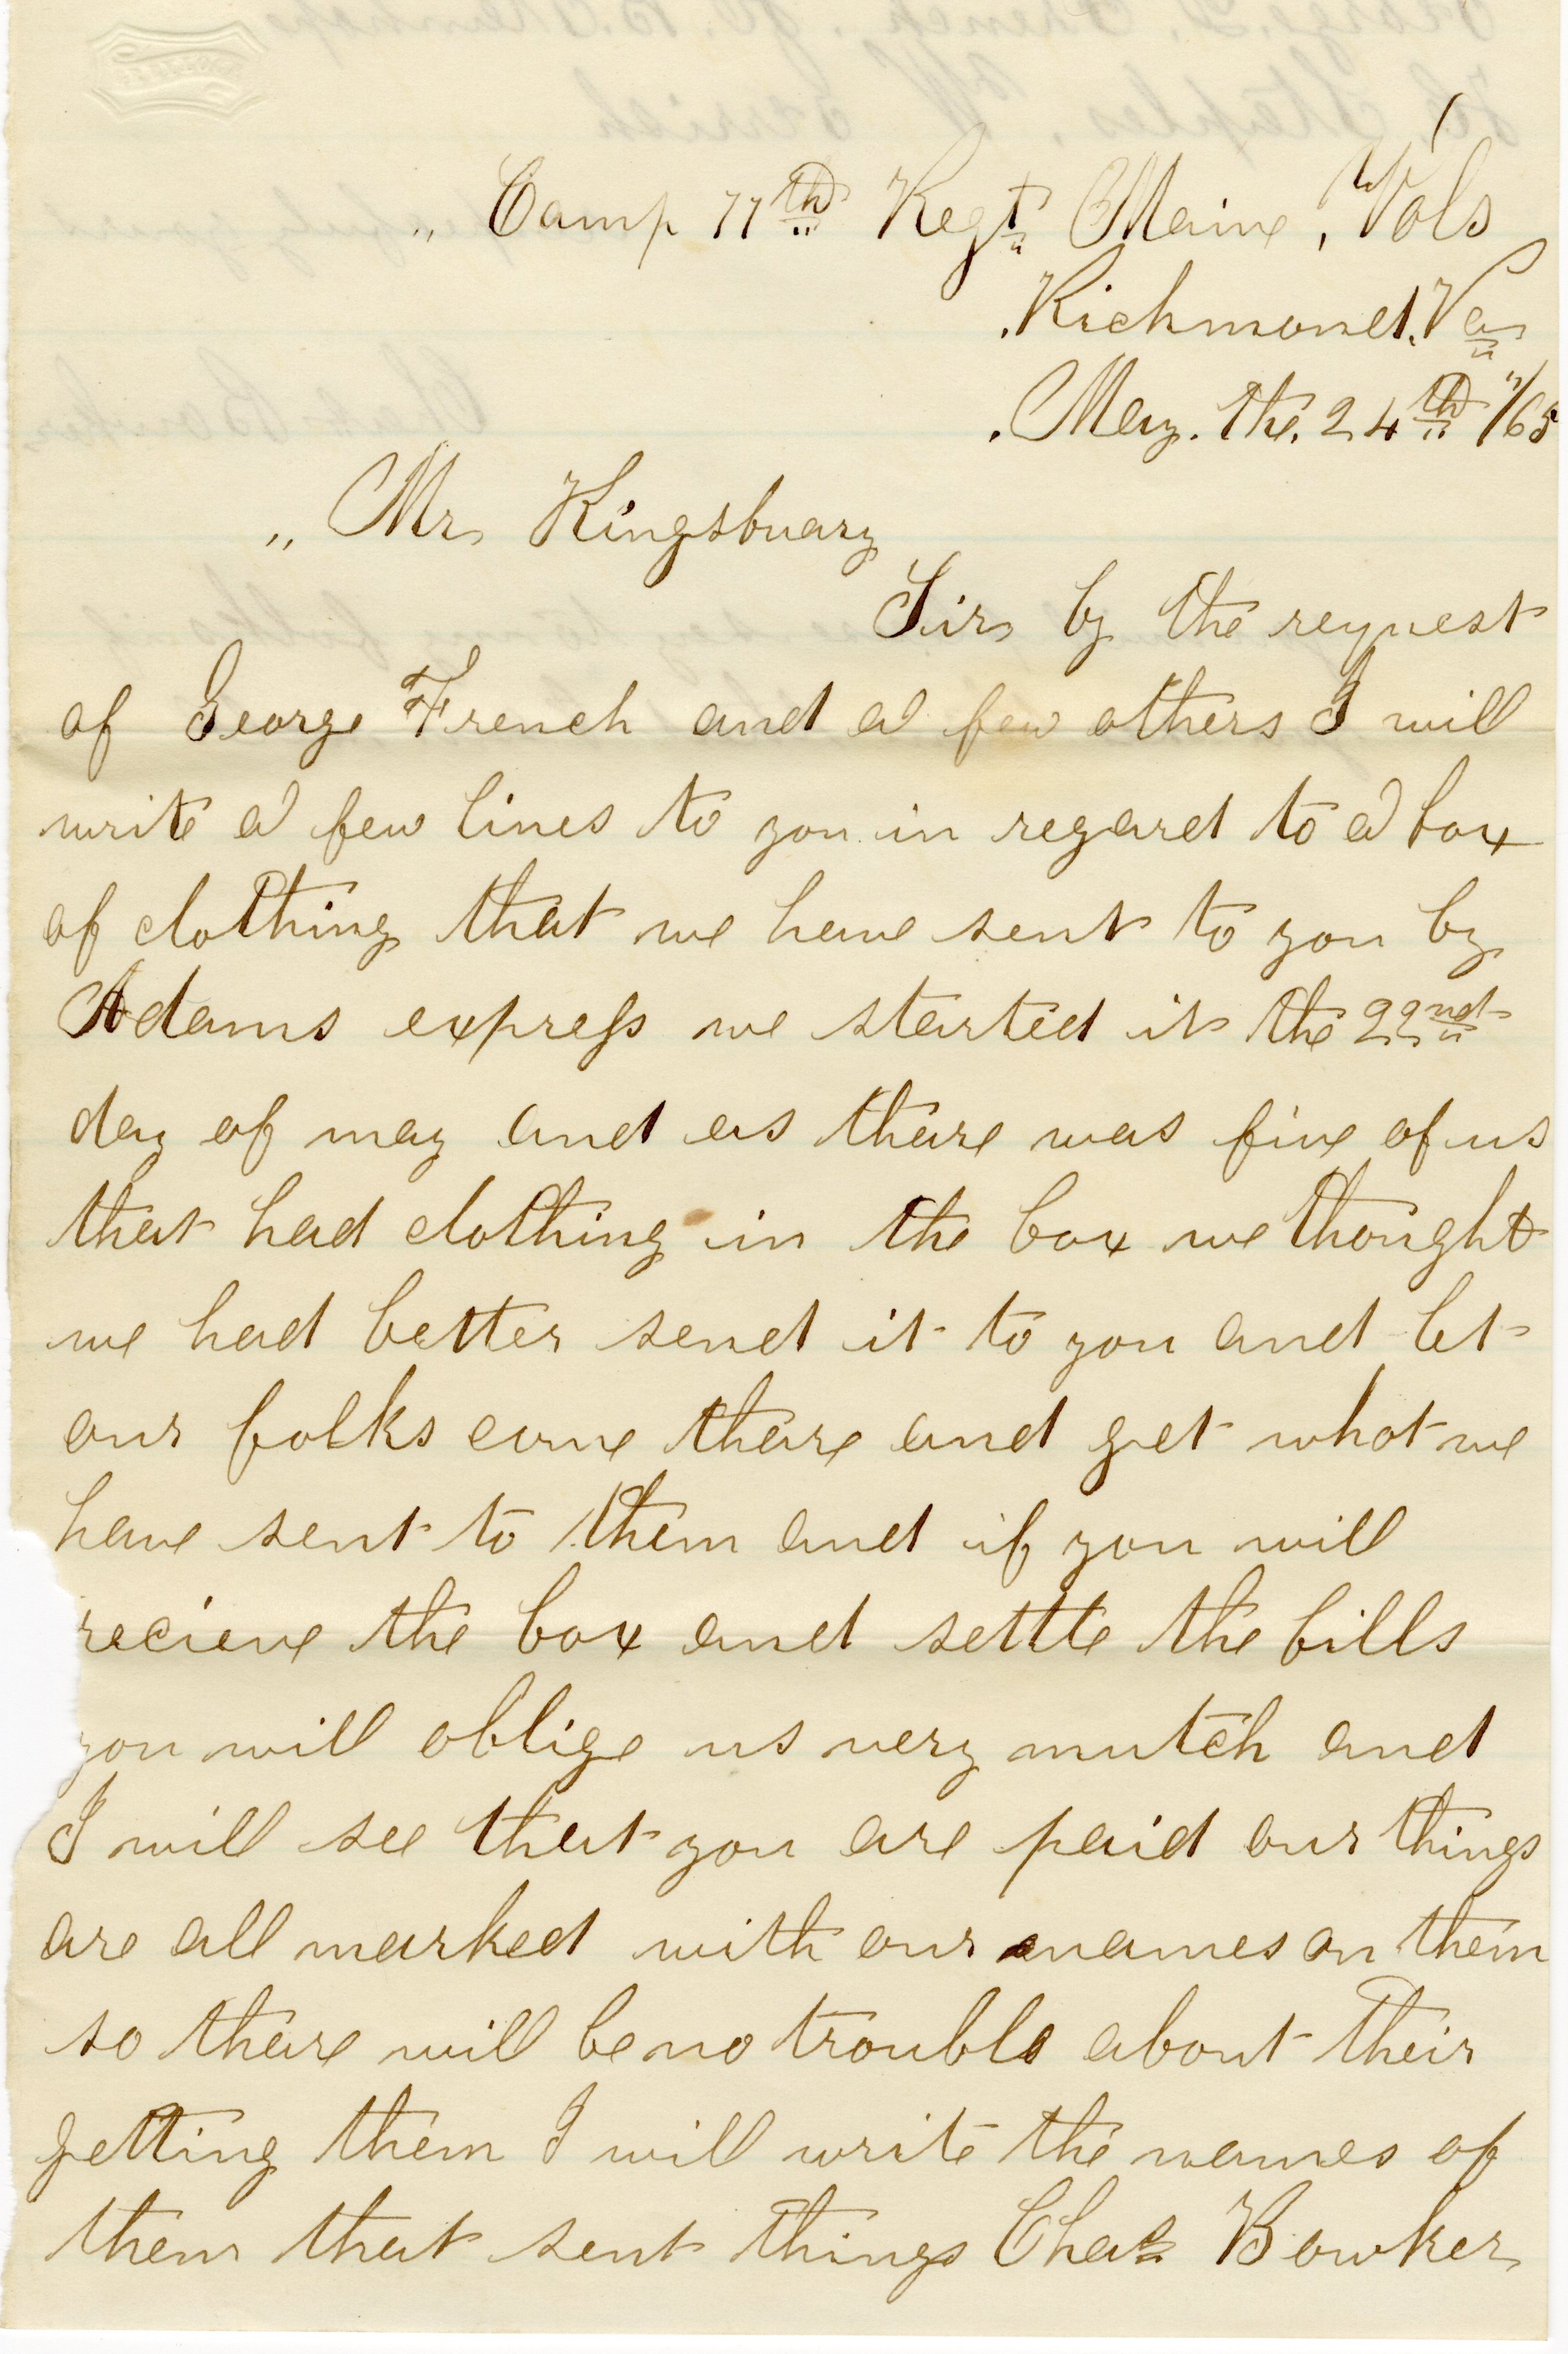 „ Camp 11th Regt Maine, Vols
. Richmond. Va
. May. the. 24th "/65
„ Mr Kingsbuary
Sir by the request
of George French and a few others I will
write a few lines to you in regard to a box
of clothing that we have sent to you by
Adams express we started it the 22nd
day of may and as thare was five of us
that had clothing in the box we thought
we had better send it to you and let
our folks come thare and get what we
have sent to them and if you will
recieve the box and settle the bills
you will oblige us very mutch and
I will see that you are paid our things
are all marked with our names on them
so thare will be no trouble about their
getting them I will write the names of
them that sent things Chas Bowker